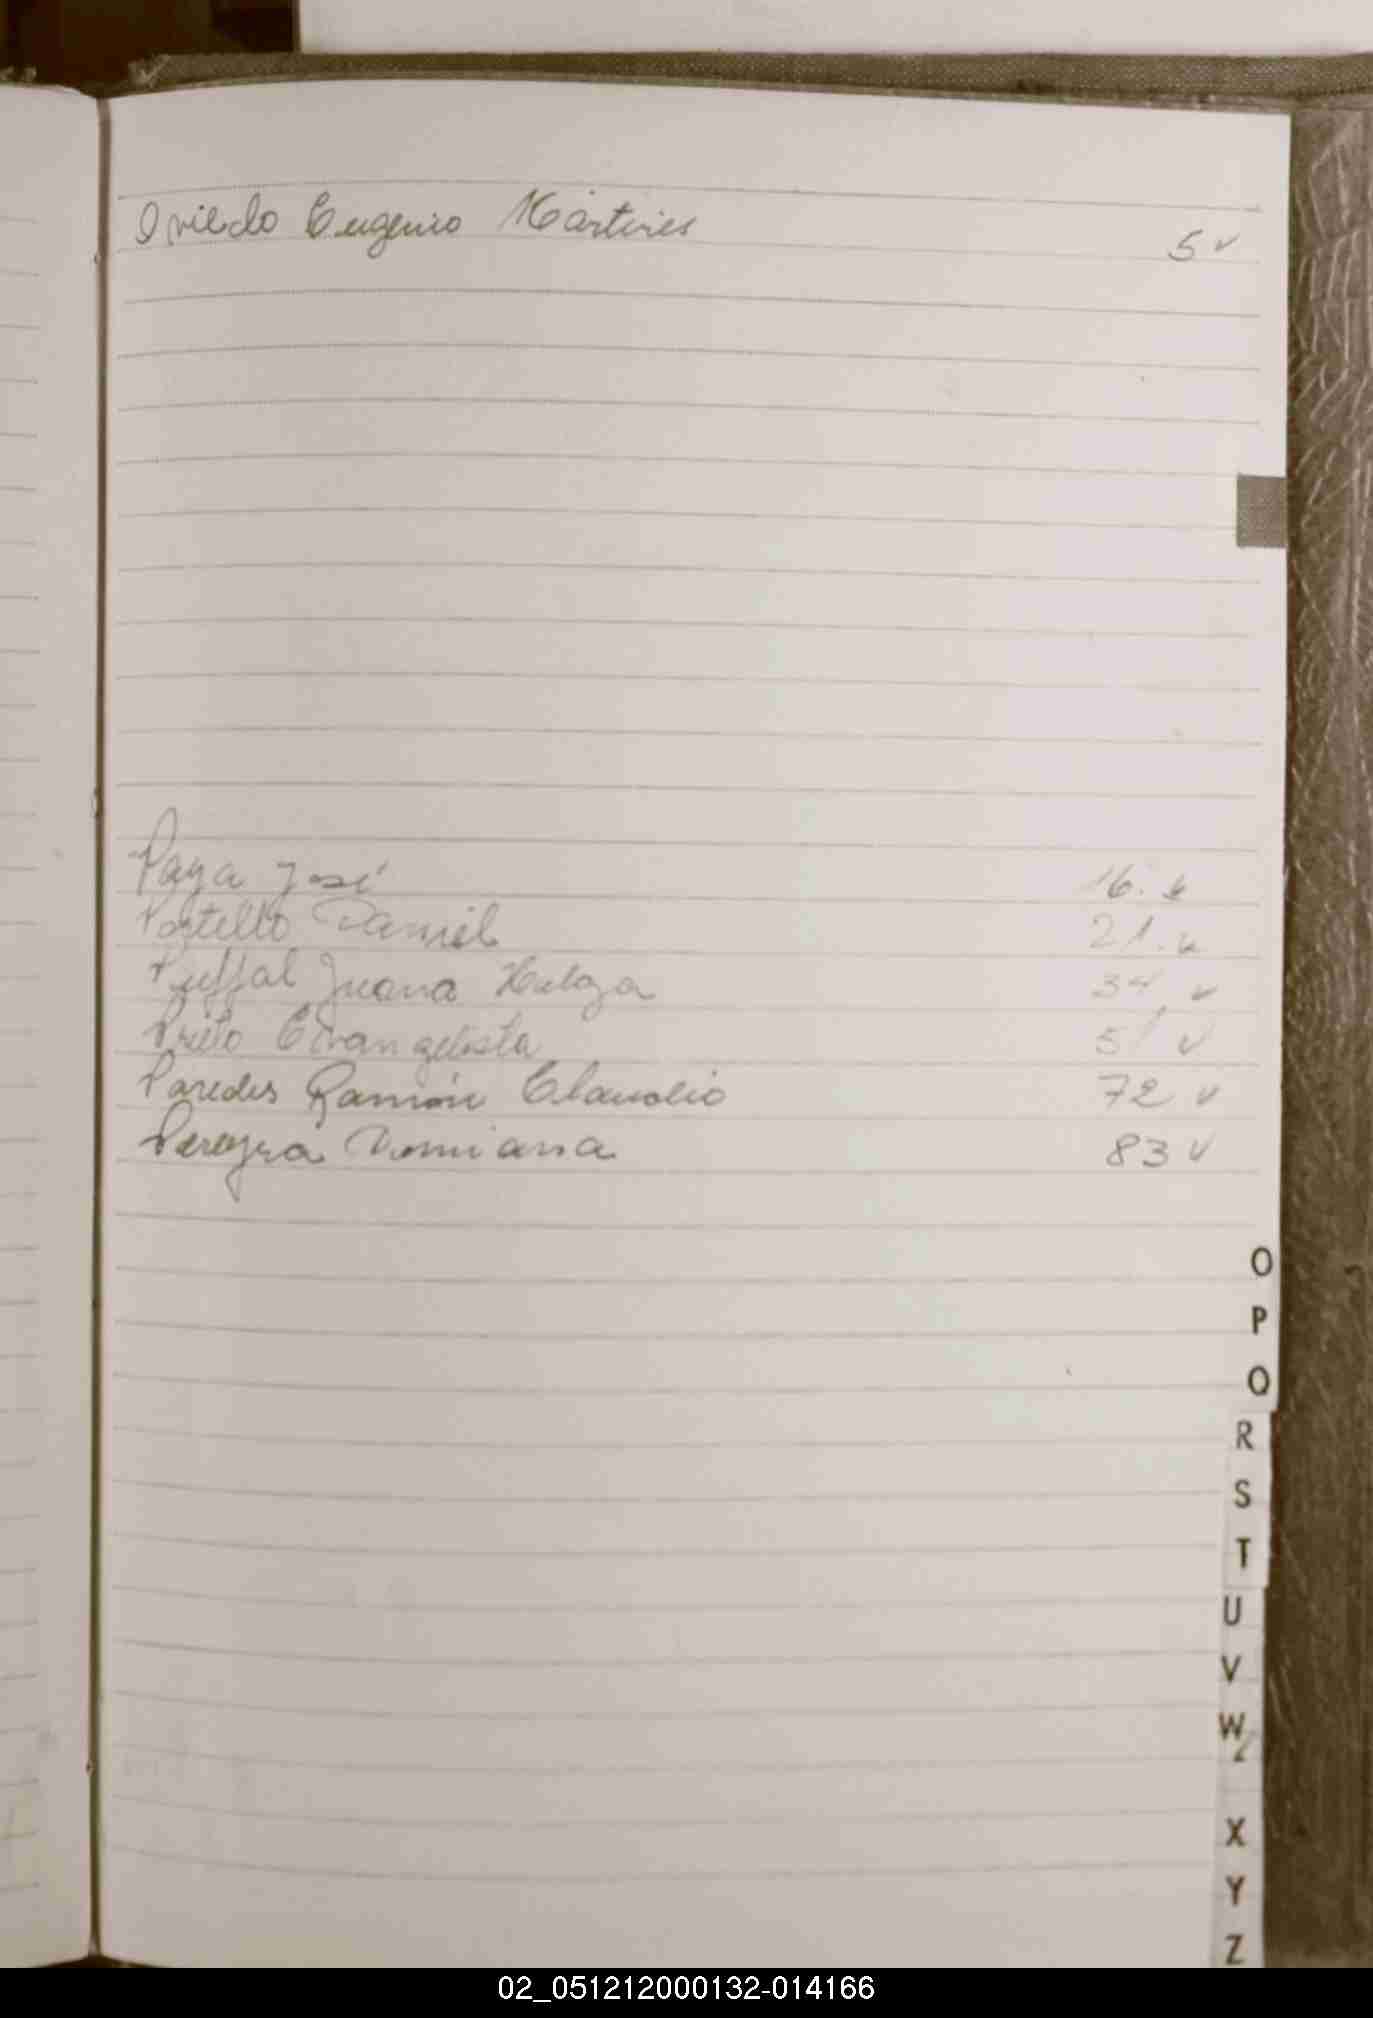 Oviedo Eugenio Mártires 5 v
Paya José 16. v
Portello Daniel 21. v
Puffal Juana Helga 34 v
Prieto Evangelista 51 v
Paredes Ramón Claudio 72 v
Pereyra Domiana 83 v
O
P
Q
R
S
T
U
V
W
X
Y
Z
02_051212000132-014166